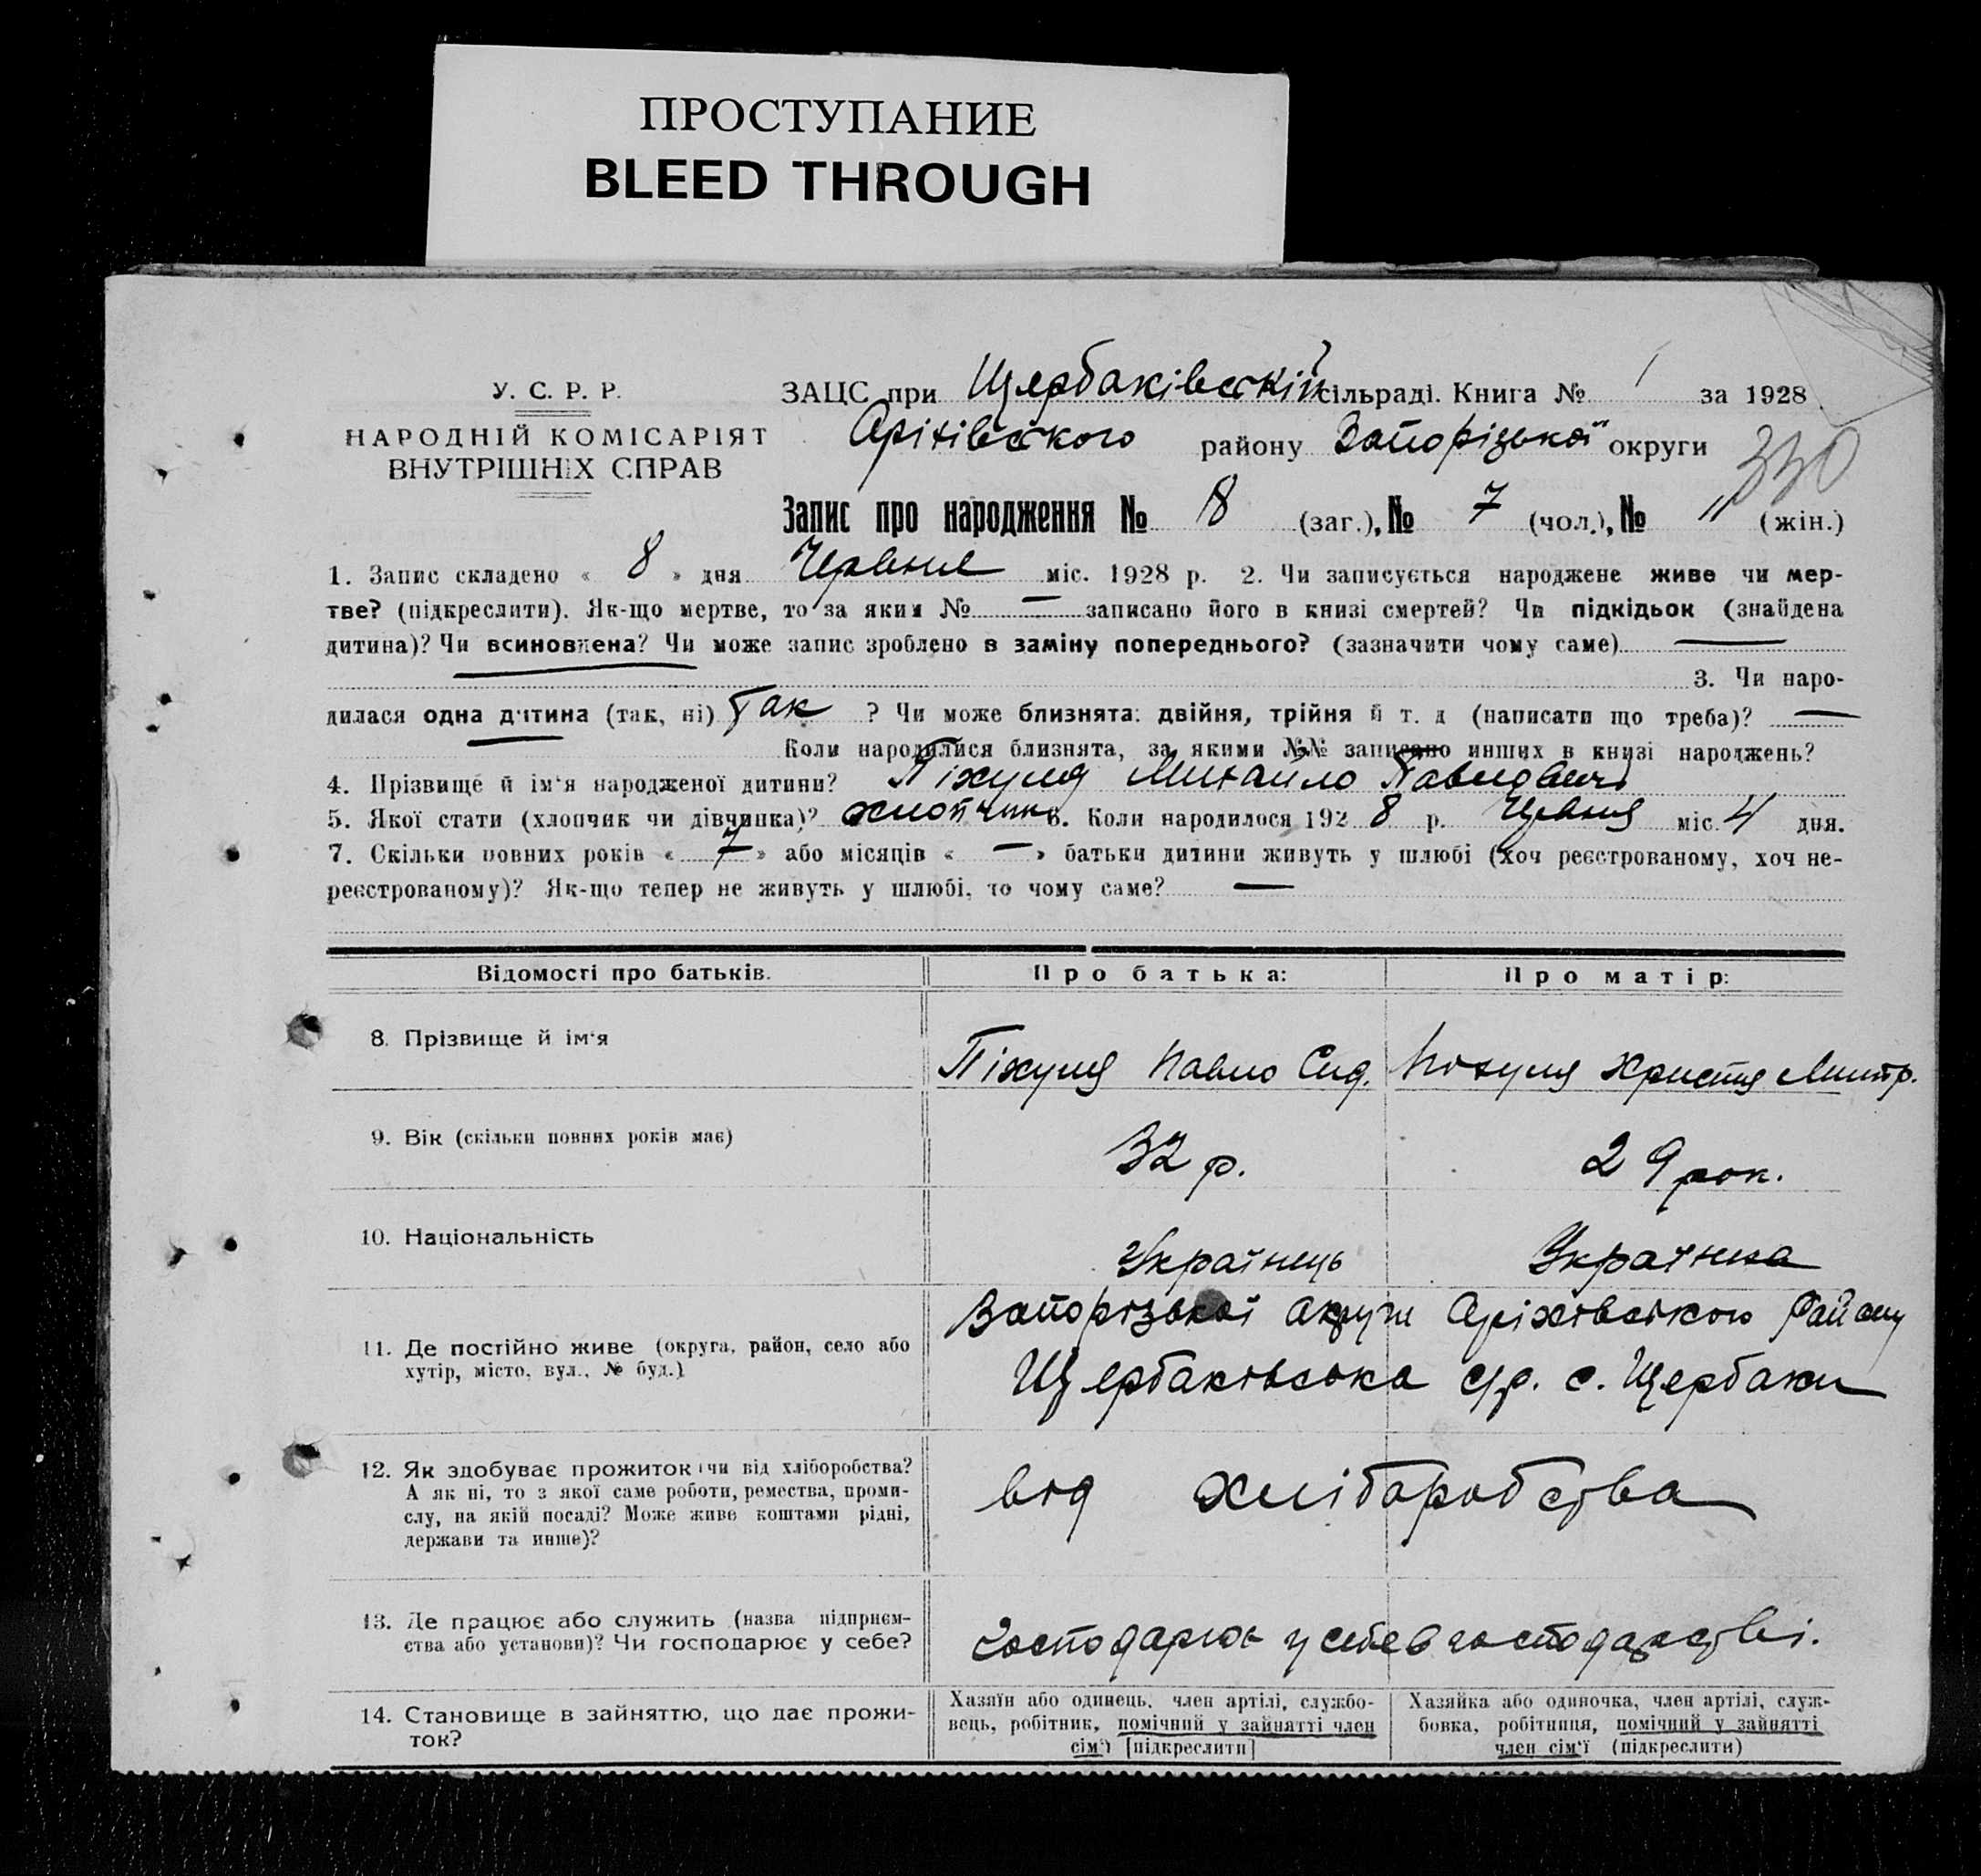 ПРОСТУПАНИЕ
BLEED THROUGH
У. С. Р. Р.
НАРОДНІЙ КОМІСАРІЯТ
ВНУТРІШНІХ СПРАВ
ЗАЦС при Щербаківській сільраді. Книга № 1 за 1928
Оріхівського району Запорізької округи
330
Запис про народження № 8 (заг.), № 7 (чол.), № " (жін.)
1. Запис складено « 8 » дня Червня міс. 1928 р. 2. Чи записується народжене живе чи мер-
тве? (підкреслити). Як-що мертве, то за яким № — записано його в книзі смертей? Чи підкідьок (знайдена
дитина)? Чи всиновлена? Чи може запис зроблено в заміну попереднього? (зазначити чому саме) —
3. Чи наро-
дилася одна дитина (так, ні) Так ? Чи може близнята: двійня, трійня й т. д (написати що треба)? —
Коли народилися близнята, за якими №№ записано инших в книзі народжень?
4. Прізвище й ім'я народженої дитини? Піхуля Михайло Павлович
5. Якої стати (хлопчик чи дівчинка)? хлопчик 6. Коли народилося 1928 р. Червня міс. 4 дня.
7. Скільки повних років « 7 » або місяців « — » батьки дитини живуть у шлюбі (хоч реєстрованому, хоч не-
реєстрованому)? Як-що тепер не живуть у шлюбі, то чому саме? —
Відомості про батьків. Про батька: Про матір:
8. Прізвище й ім'я Піхуля Павло Сид. Піхуля Христя Митр.
9. Вік (скільки повних років має) 32 р. 29 рок.
10. Національність Українець Українка
11. Де постійно живе (округа, район, село або
хутір, місто, вул., № буд.)
Запорізької округи Оріхівського Району
Щербаківська с/р. с. Щербаки
12. Як здобуває прожиток: чи від хліборобства?
А як ні, то з якої саме роботи, ремества, проми-
слу, на якій посаді? Може живе коштами рідні,
держави та инше)?
від хліборобства
13. Де працює або служить (назва підприєм-
ства або установи)? Чи господарює у себе?
Господарює у себе в господарстві.
14. Становище в зайняттю, що дає прожи-
ток?
Хазяїн або одинець, член артілі, службо-
вець, робітник, помічний у зайнятті член
сім'ї [підкреслити]
Хазяйка або одиночка, член артілі, служ-
бовка, робітниця, помічний у зайнятті
член сім'ї (підкреслити)